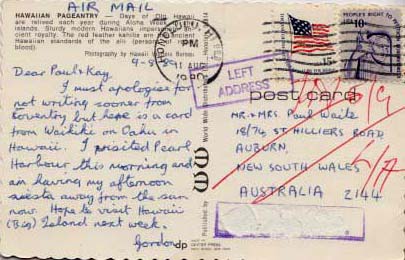 AIR MAIL
HAWAIIAN PAGEANTRY — Days of Old Hawaii
are relived each year during Aloha Week
islands. Sturdy modern Hawaiians
The red feather kahilis are
Hawaiian standards of the alii
blood).
Photography by Hawaii
9-8-
Dear Paul & Kay,
I must apologise for
not writing sooner from
Koventry but here is a card
from Waikiki on Oahu in
Hawaii. I visited Pearl
Harbour this morning and
am having my afternoon
siesta away from the sun
now. Hope to visit Hawaii
(Big) Island next week.
Gordon
HONOLULU
PM
AUG
15c
PEOPLE'S RIGHT TO
LEFT
ADDRESS
post card
MR. & MRS. Paul Waite
18/74 ST HILLIERS ROAD,
AUBURN,
NEW SOUTH WALES
AUSTRALIA 2144
L/A
World Wide
Published by
dp
DEXTER PRESS